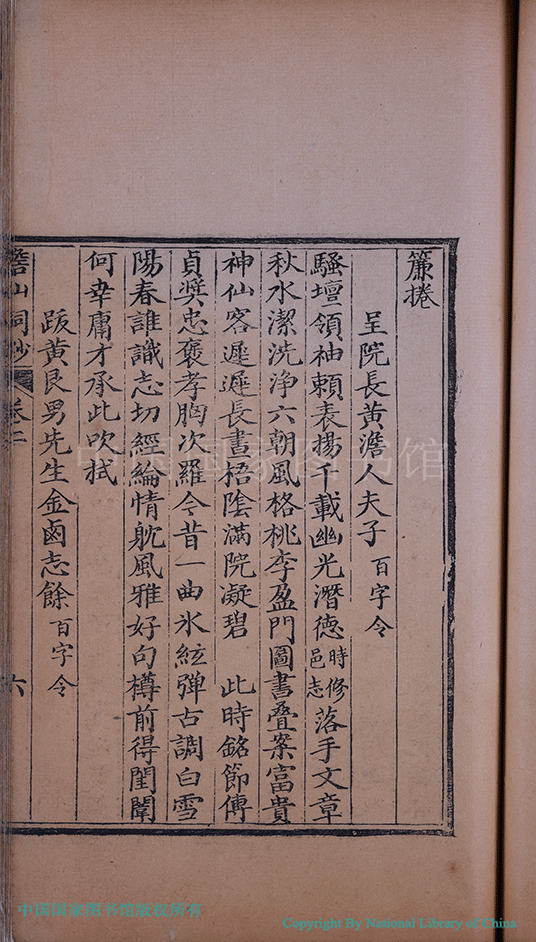 簾捲
呈院長黃澹人夫子 百字令
騷壇領袖賴表揚千載幽光潛德時修邑志落手文章
秋水潔洗淨六朝風格桃李盈門圖書叠案富貴
神仙客遲遲長晝梧陰滿院凝碧 此時銘節傳
貞獎忠褒孝胸次羅今昔一曲氷絃彈古調白雪
陽春誰識志切經綸情躭風雅好句樽前得閨闈
何幸庸才承此吹拭
跋黃艮男先生金鹵志餘 百字令
山詞鈔 卷二 六
中国国家图书馆
中国国家图书馆版权所有
Copyright By National Library of China